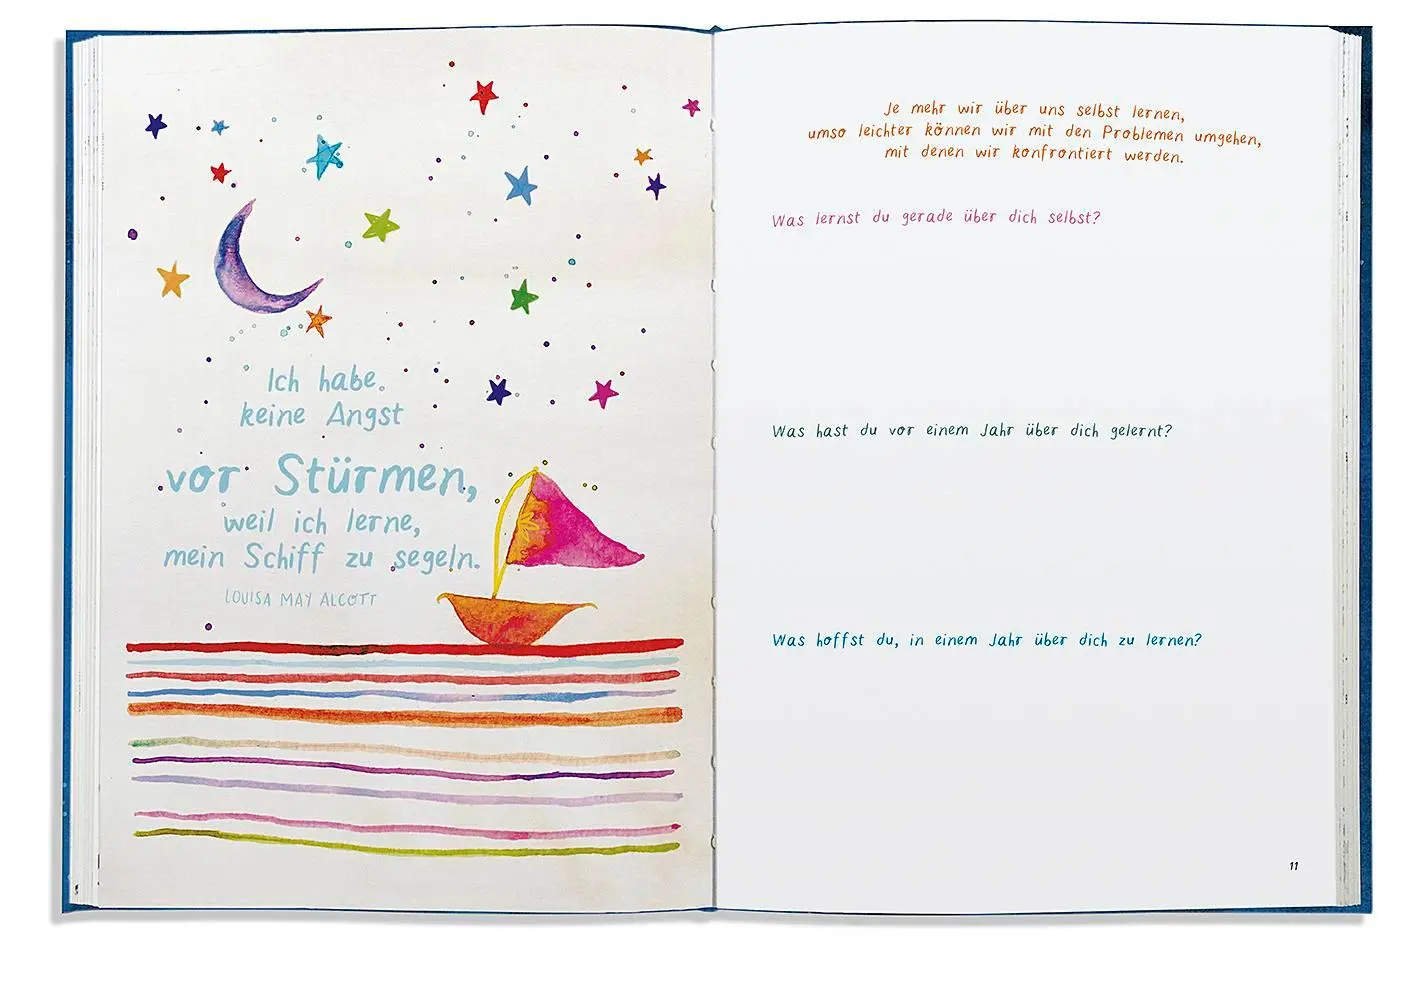 Ich habe
keine Angst
vor Stürmen,
weil ich lerne,
mein Schiff zu segeln.
LOUISA MAY ALCOTT
Je mehr wir über uns selbst lernen,
umso leichter können wir mit den Problemen umgehen,
mit denen wir konfrontiert werden.
Was lernst du gerade über dich selbst?
Was hast du vor einem Jahr über dich gelernt?
Was hoffst du, in einem Jahr über dich zu lernen?
11